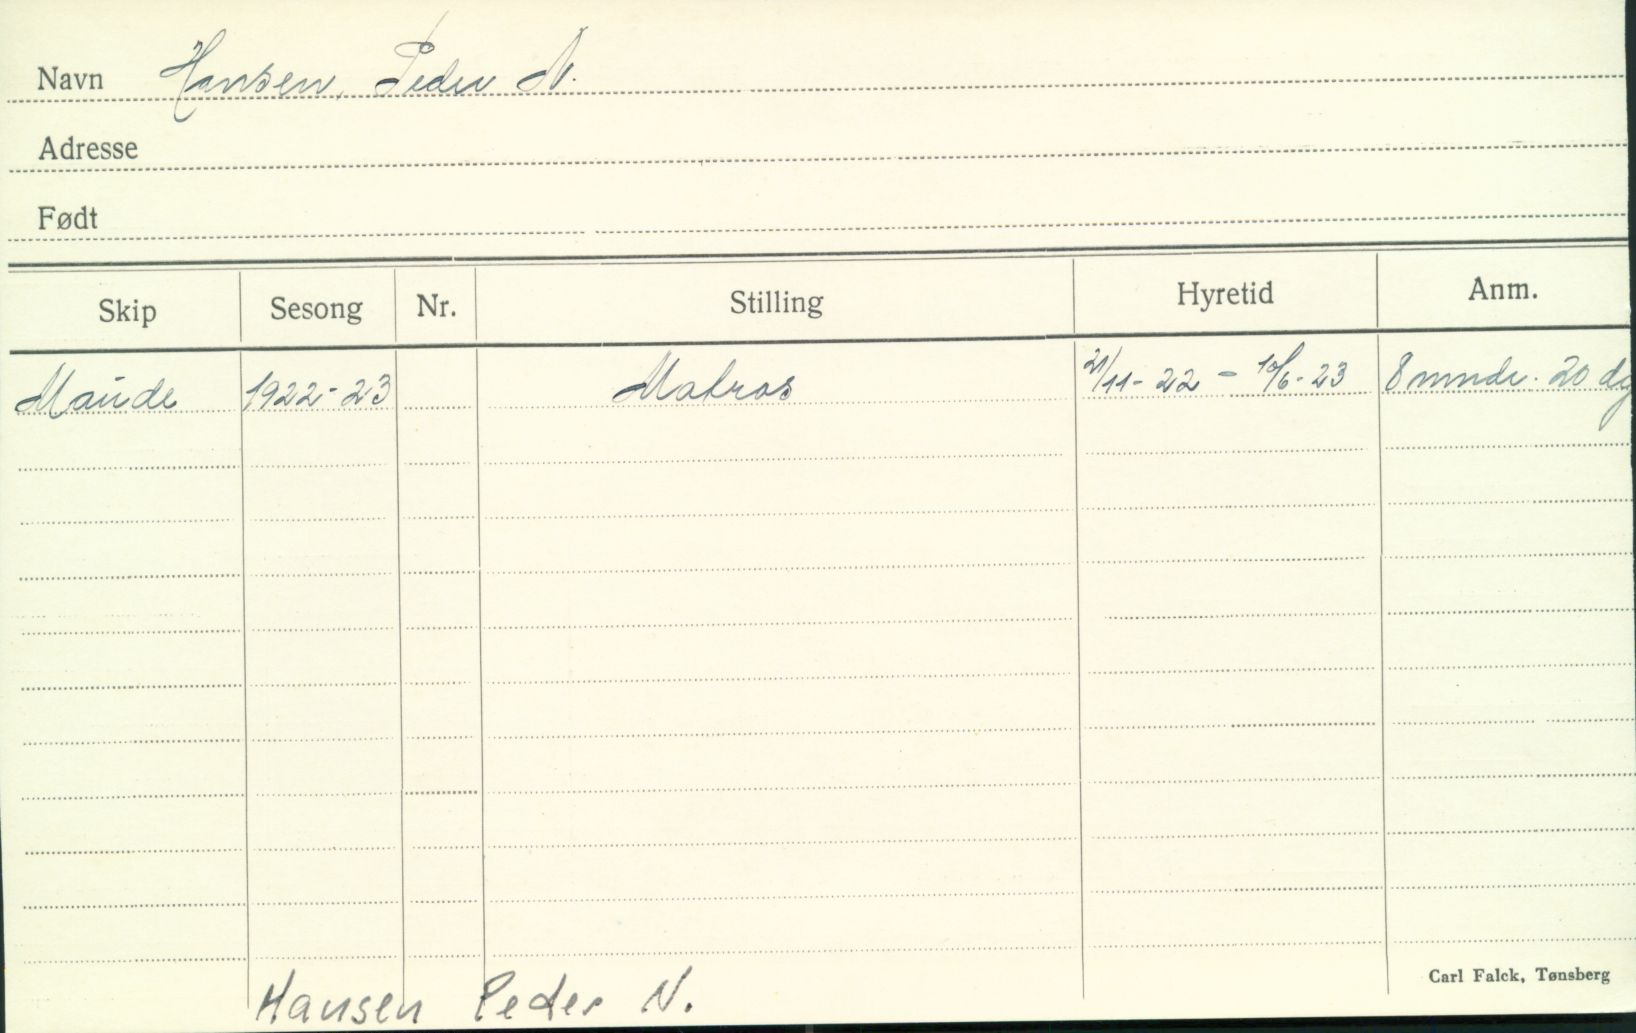 Navn Hansen, Peder N.
Adresse
Født
Skip Sesong Nr. Stilling Hyretid Anm.
Maude 1922-23 Matros 21/11-22 - 10/6-23 8 mndr. 20 dg
Carl Falck, Tønsberg
Hansen Peder N.